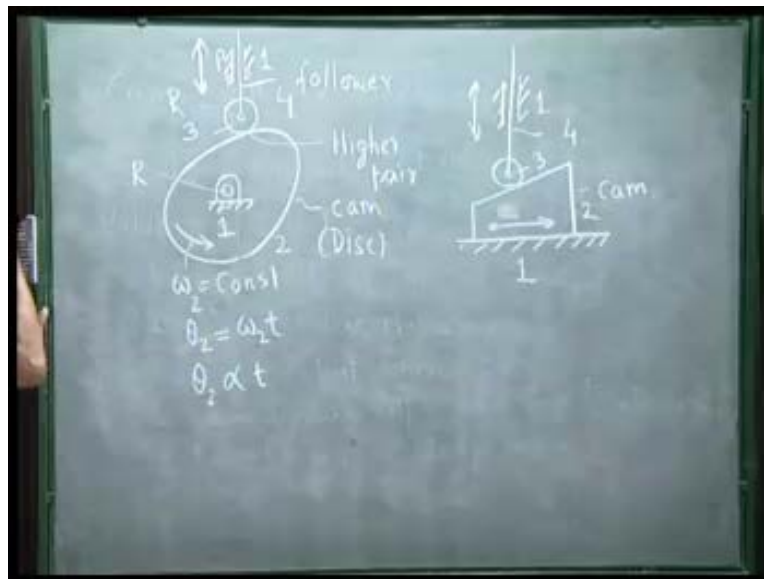 1
R
4 follower
3
Higher
pair
R
cam
1
2
(Disc)
ω₂ = Const
θ₂ = ω₂t
θ₂ α t
1
4
3
Cam
2
1